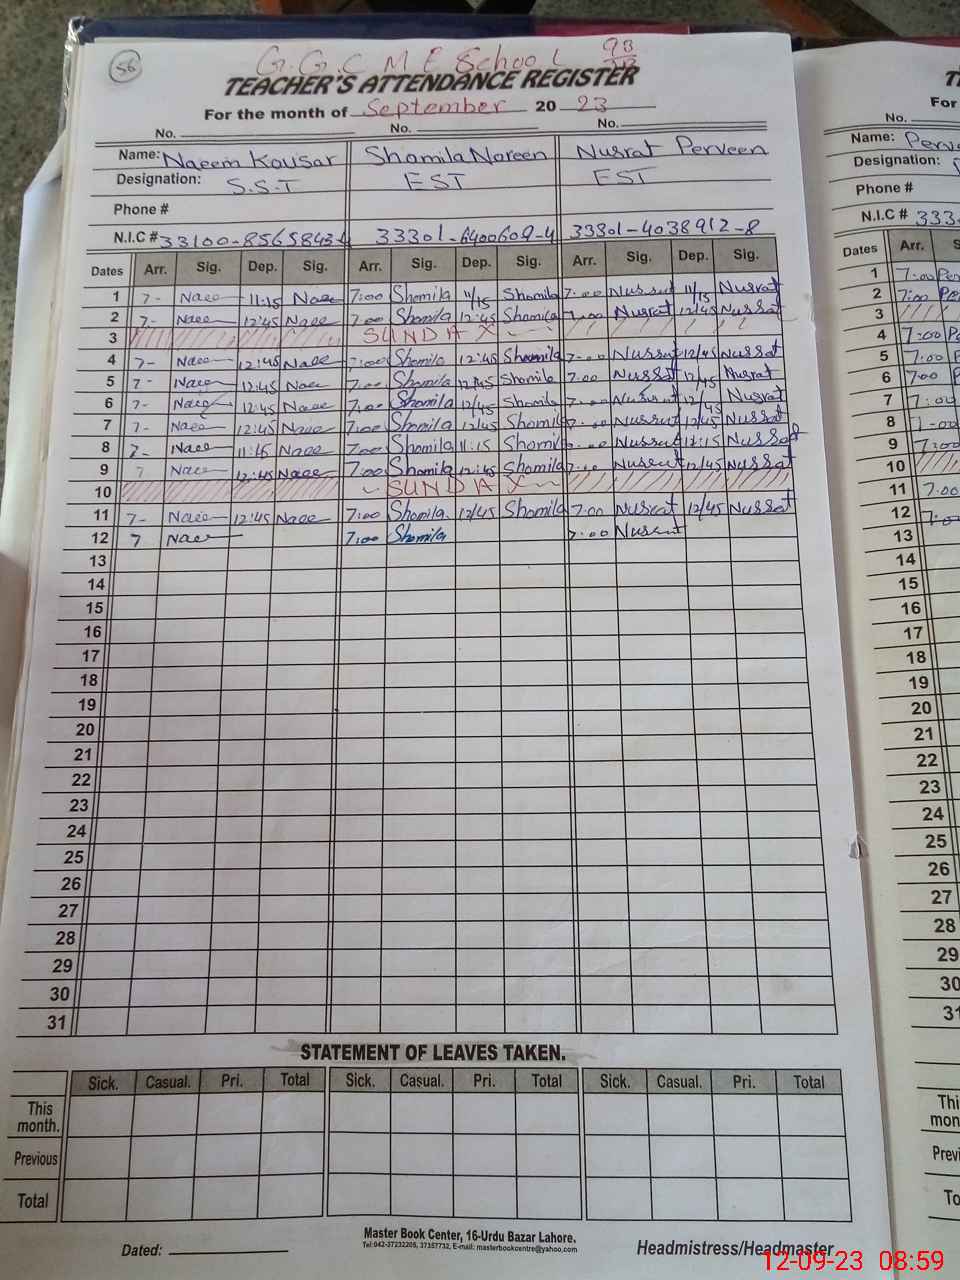 56
G.G.C M E School 98/JB
TEACHER'S ATTENDANCE REGISTER
For the month of September 2023
No. No. No.
Name: Naeem Kousar Shamila Noreen Nusrat Perveen
Designation: S.S.T EST EST
Phone #
N.I.C # 33100-8565843-4 33301-6400609-4 33301-4038912-8
Dates Arr. Sig. Dep. Sig. Arr. Sig. Dep. Sig. Arr. Sig. Dep. Sig.
1 7- Naee 11:15 Naee 7:00 Shamila 11/15 Shamila 7:00 Nusrat 11/15 Nusrat
2 7- Naee 12:45 Naee 7:00 Shamila 12:45 Shamila 7:00 Nusrat 12/45 Nusrat
3 SUNDAY
4 7- Naee 12:45 Naee 7:00 Shamila 12:45 Shamila 7:00 Nusrat 12/45 Nusrat
5 7- Naee 12:45 Naee 7:00 Shamila 12/45 Shamila 7:00 Nusrat 12/45 Nusrat
6 7- Naee 12:45 Naee 7:00 Shamila 12/45 Shamila 7:00 Nusrat 12/45 Nusrat
7 7- Naee 12:45 Naee 7:00 Shamila 12/45 Shamila 7:00 Nusrat 12/45 Nusrat
8 7- Naee 11:15 Naee 7:00 Shamila 11:15 Shamila 7:00 Nusrat 11:15 Nusrat
9 7 Naee 12:45 Naee 7:00 Shamila 12:45 Shamila 7:00 Nusrat 12/45 Nusrat
10 SUNDAY
11 7- Naee 12:45 Naee 7:00 Shamila 12/45 Shamila 7:00 Nusrat 12/45 Nusrat
12 7 Naee 7:00 Shamila 7:00 Nusrat
13
14
15
16
17
18
19
20
21
22
23
24
25
26
27
28
29
30
31
STATEMENT OF LEAVES TAKEN.
Sick. Casual. Pri. Total Sick. Casual. Pri. Total Sick. Casual. Pri. Total
This month.
Previous
Total
Master Book Center, 16-Urdu Bazar Lahore.
Tel:042-37232205, 37357732, E-mail: masterbookcentre@yahoo.com
Dated: Headmistress/Headmaster
For
No.
Name: Perve
Designation:
Phone #
N.I.C # 333
Dates Arr.
1 7:00
2 7:00
3
4 7:00
5 7:00
6 7:00
7 7:00
8 7:00
9 7:00
10
11 7:00
12 7:00
13
14
15
16
17
18
19
20
21
22
23
24
25
26
27
28
29
30
31
12-09-23 08:59